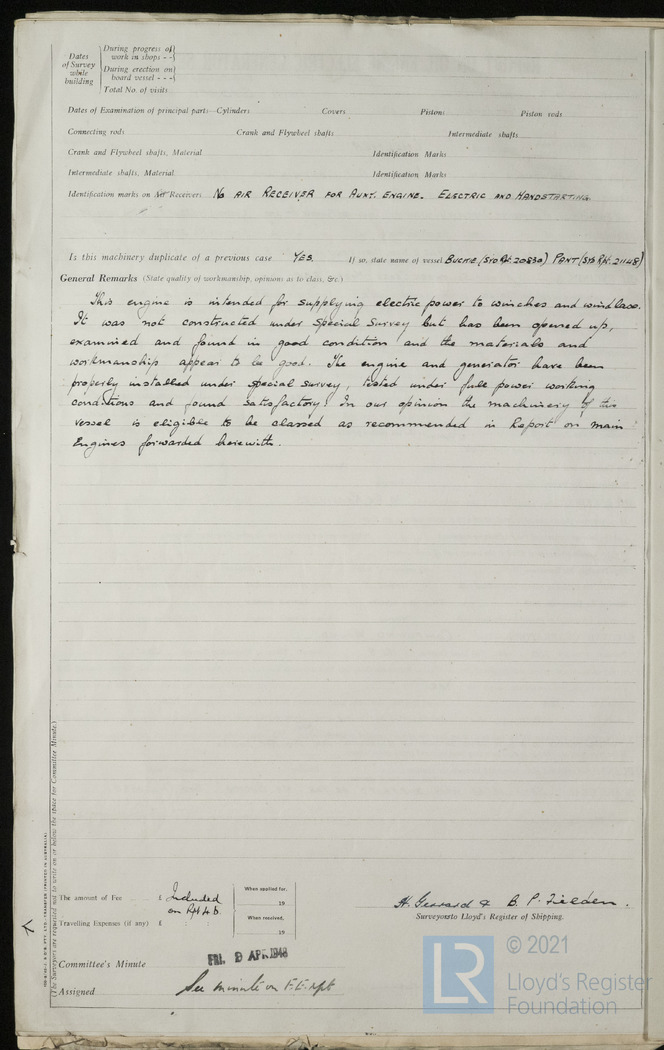 Dates of Survey while building
During progress of work in shops - -
During erection on board vessel - - -
Total No. of visits
Dates of Examination of principal parts—Cylinders Covers Pistons Piston rods
Connecting rods Crank and Flywheel shafts Intermediate shafts
Crank and Flywheel shafts, Material Identification Marks
Intermediate shafts, Material Identification Marks
Identification marks on Air Receivers No AIR RECEIVER FOR AUXY. ENGINE. ELECTRIC AND HANDSTARTING
Is this machinery duplicate of a previous case YES. If so, state name of vessel BURKE (SYD Rpt. 20830) PANT (SYD Rpt. 21148)
General Remarks (State quality of workmanship, opinions as to class, &c.)
This engine is intended for supplying electric power to winches and windlass.
It was not constructed under Special Survey but has been opened up,
examined and found in good condition and the materials and
workmanship appear to be good. The engine and generator have been
properly installed under special survey, tested under full power working
conditions and found satisfactory. In our opinion the machinery of this
vessel is eligible to be classed as recommended in Report on main
Engines forwarded herewith.
(The Surveyors are requested not to write on or below the space for Committee Minute.)
The amount of Fee £ Included on Rpt 4b.
When applied for, 19
Travelling Expenses (if any) £
When received, 19
H. Gerrard & B. P. Fielden.
Surveyors to Lloyd's Register of Shipping.
Committee's Minute FRI. 9 APR 1948
Assigned See minute on F.E. rpt
LR
© 2021
Lloyd's Register
Foundation